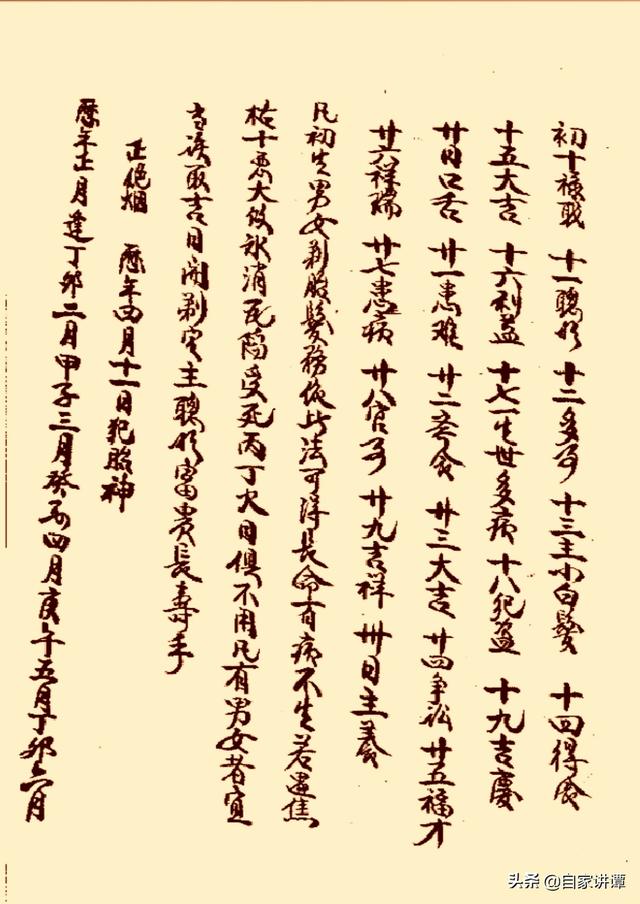 初十禄職 十一聰明 十二多 十三主小白髮 十四得食
十五大吉 十六利益 十七一生世多病 十八犯盗 十九吉慶
廿日口舌 廿一患难 廿二斋食 廿三大吉 廿四争讼 廿五福才
廿六祥瑞 廿七患病 廿八官司 廿九吉祥 卅日主義
凡初生男女剃胎髮務依此法可得長命百病不生若遇焦
枯十惡大敗氷消瓦陷受死丙丁火日俱不用凡有男女者宜
取吉日開剃定主聰明富貴長壽乎
正绝烟 曆年四月十一日犯胎神
曆年正月逢丁卯二月甲子三月癸酉四月庚午五月丁卯六月
头条 @自家讲谭